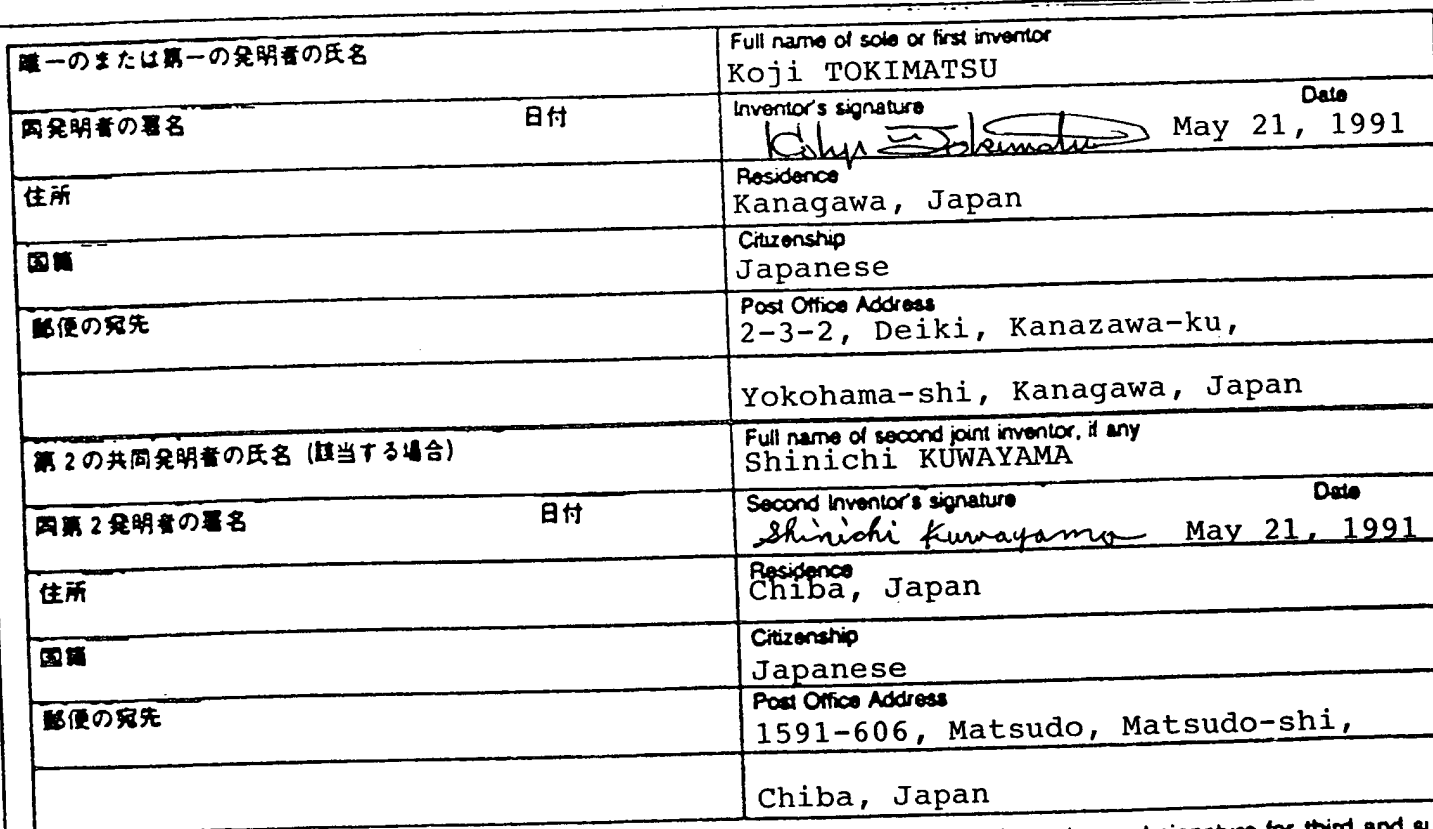 唯一のまたは第一の発明者の氏名
Full name of sole or first inventor
Koji TOKIMATSU
同発明者の署名 日付
Inventor's signature Date
Koji Tokimatsu May 21, 1991
住所
Residence
Kanagawa, Japan
国籍
Citizenship
Japanese
郵便の宛先
Post Office Address
2-3-2, Deiki, Kanazawa-ku,
Yokohama-shi, Kanagawa, Japan
第2の共同発明者の氏名(該当する場合)
Full name of second joint inventor, if any
Shinichi KUWAYAMA
同第2発明者の署名 日付
Second Inventor's signature Date
Shinichi Kuwayama May 21, 1991
住所
Residence
Chiba, Japan
国籍
Citizenship
Japanese
郵便の宛先
Post Office Address
1591-606, Matsudo, Matsudo-shi,
Chiba, Japan
signature for third and